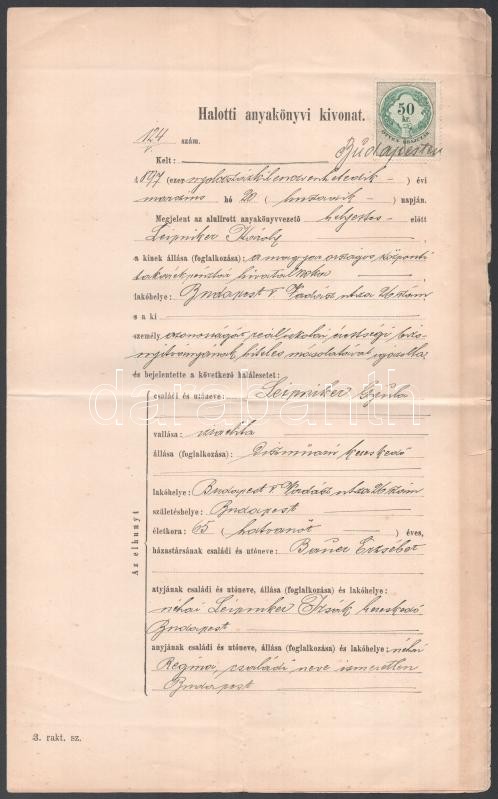 Halotti anyakönyvi kivonat.
50
kr.
124 szám.
Kelt: Budapesten
1897 (ezernyolcszázkilencvenhetedik) évi
március hó 20 (huszadik) napján.
Megjelent az alulirott anyakönyvvezető helyettes előtt
Leipniker Károly,
a kinek állása (foglalkozása): a magyar országos központi
takarékpénztár hivatalnoka
lakóhelye: Budapest V Vadász utca 26 szám
s a ki
személyazonosságát reáliskolai érettségi bizo-
nyítványának hiteles másolatával igazolta
és bejelentette a következő halálesetet:
Az elhunyt
családi és utóneve: Leipniker Gyula
vallása: izraelita
állása (foglalkozása): Diszműárú kereskedő
lakóhelye: Budapest V Vadász utca 26 szám
születéshelye: Budapest
életkora: 65 (hatvanöt) éves,
házastársának családi és utóneve: Bauer Erzsébet
atyjának családi és utóneve, állása (foglalkozása) és lakóhelye:
néhai Leipniker Izsák kereskedő
Budapest
anyjának családi és utóneve, állása (foglalkozása) és lakóhelye: néhai
Regina, családi neve ismeretlen
Budapest
3. rakt. sz.
darabanth